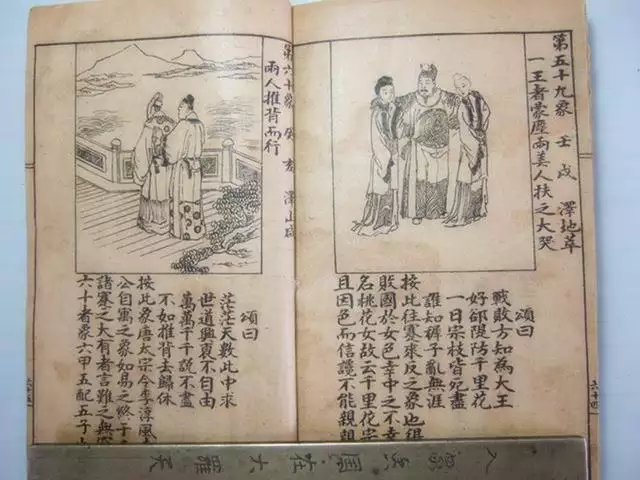 第五十九象 壬戌 澤地萃
一王者蒙塵兩美人扶之大哭
頌曰
戰敗方知為大王
好邰隄防千里花
一日宗枝皆死盡
誰知褲子亂無涯
按此往蹇來反之象也
敗國於女色幸中之不幸
名桃花女故云千里花宗
且因色而信讒不能親親
六十四
第六十象 癸亥 澤山咸
兩人推背而行
頌曰
茫茫天數此中求
世道興衰不自由
萬萬千千說不盡
不如推背去歸休
按此象唐太宗令李淳風
公自寓之象如易之終于
諸蹇之大有者言雖之無
六十者象六甲五配五子
六十五
入象氣圍在大羅天